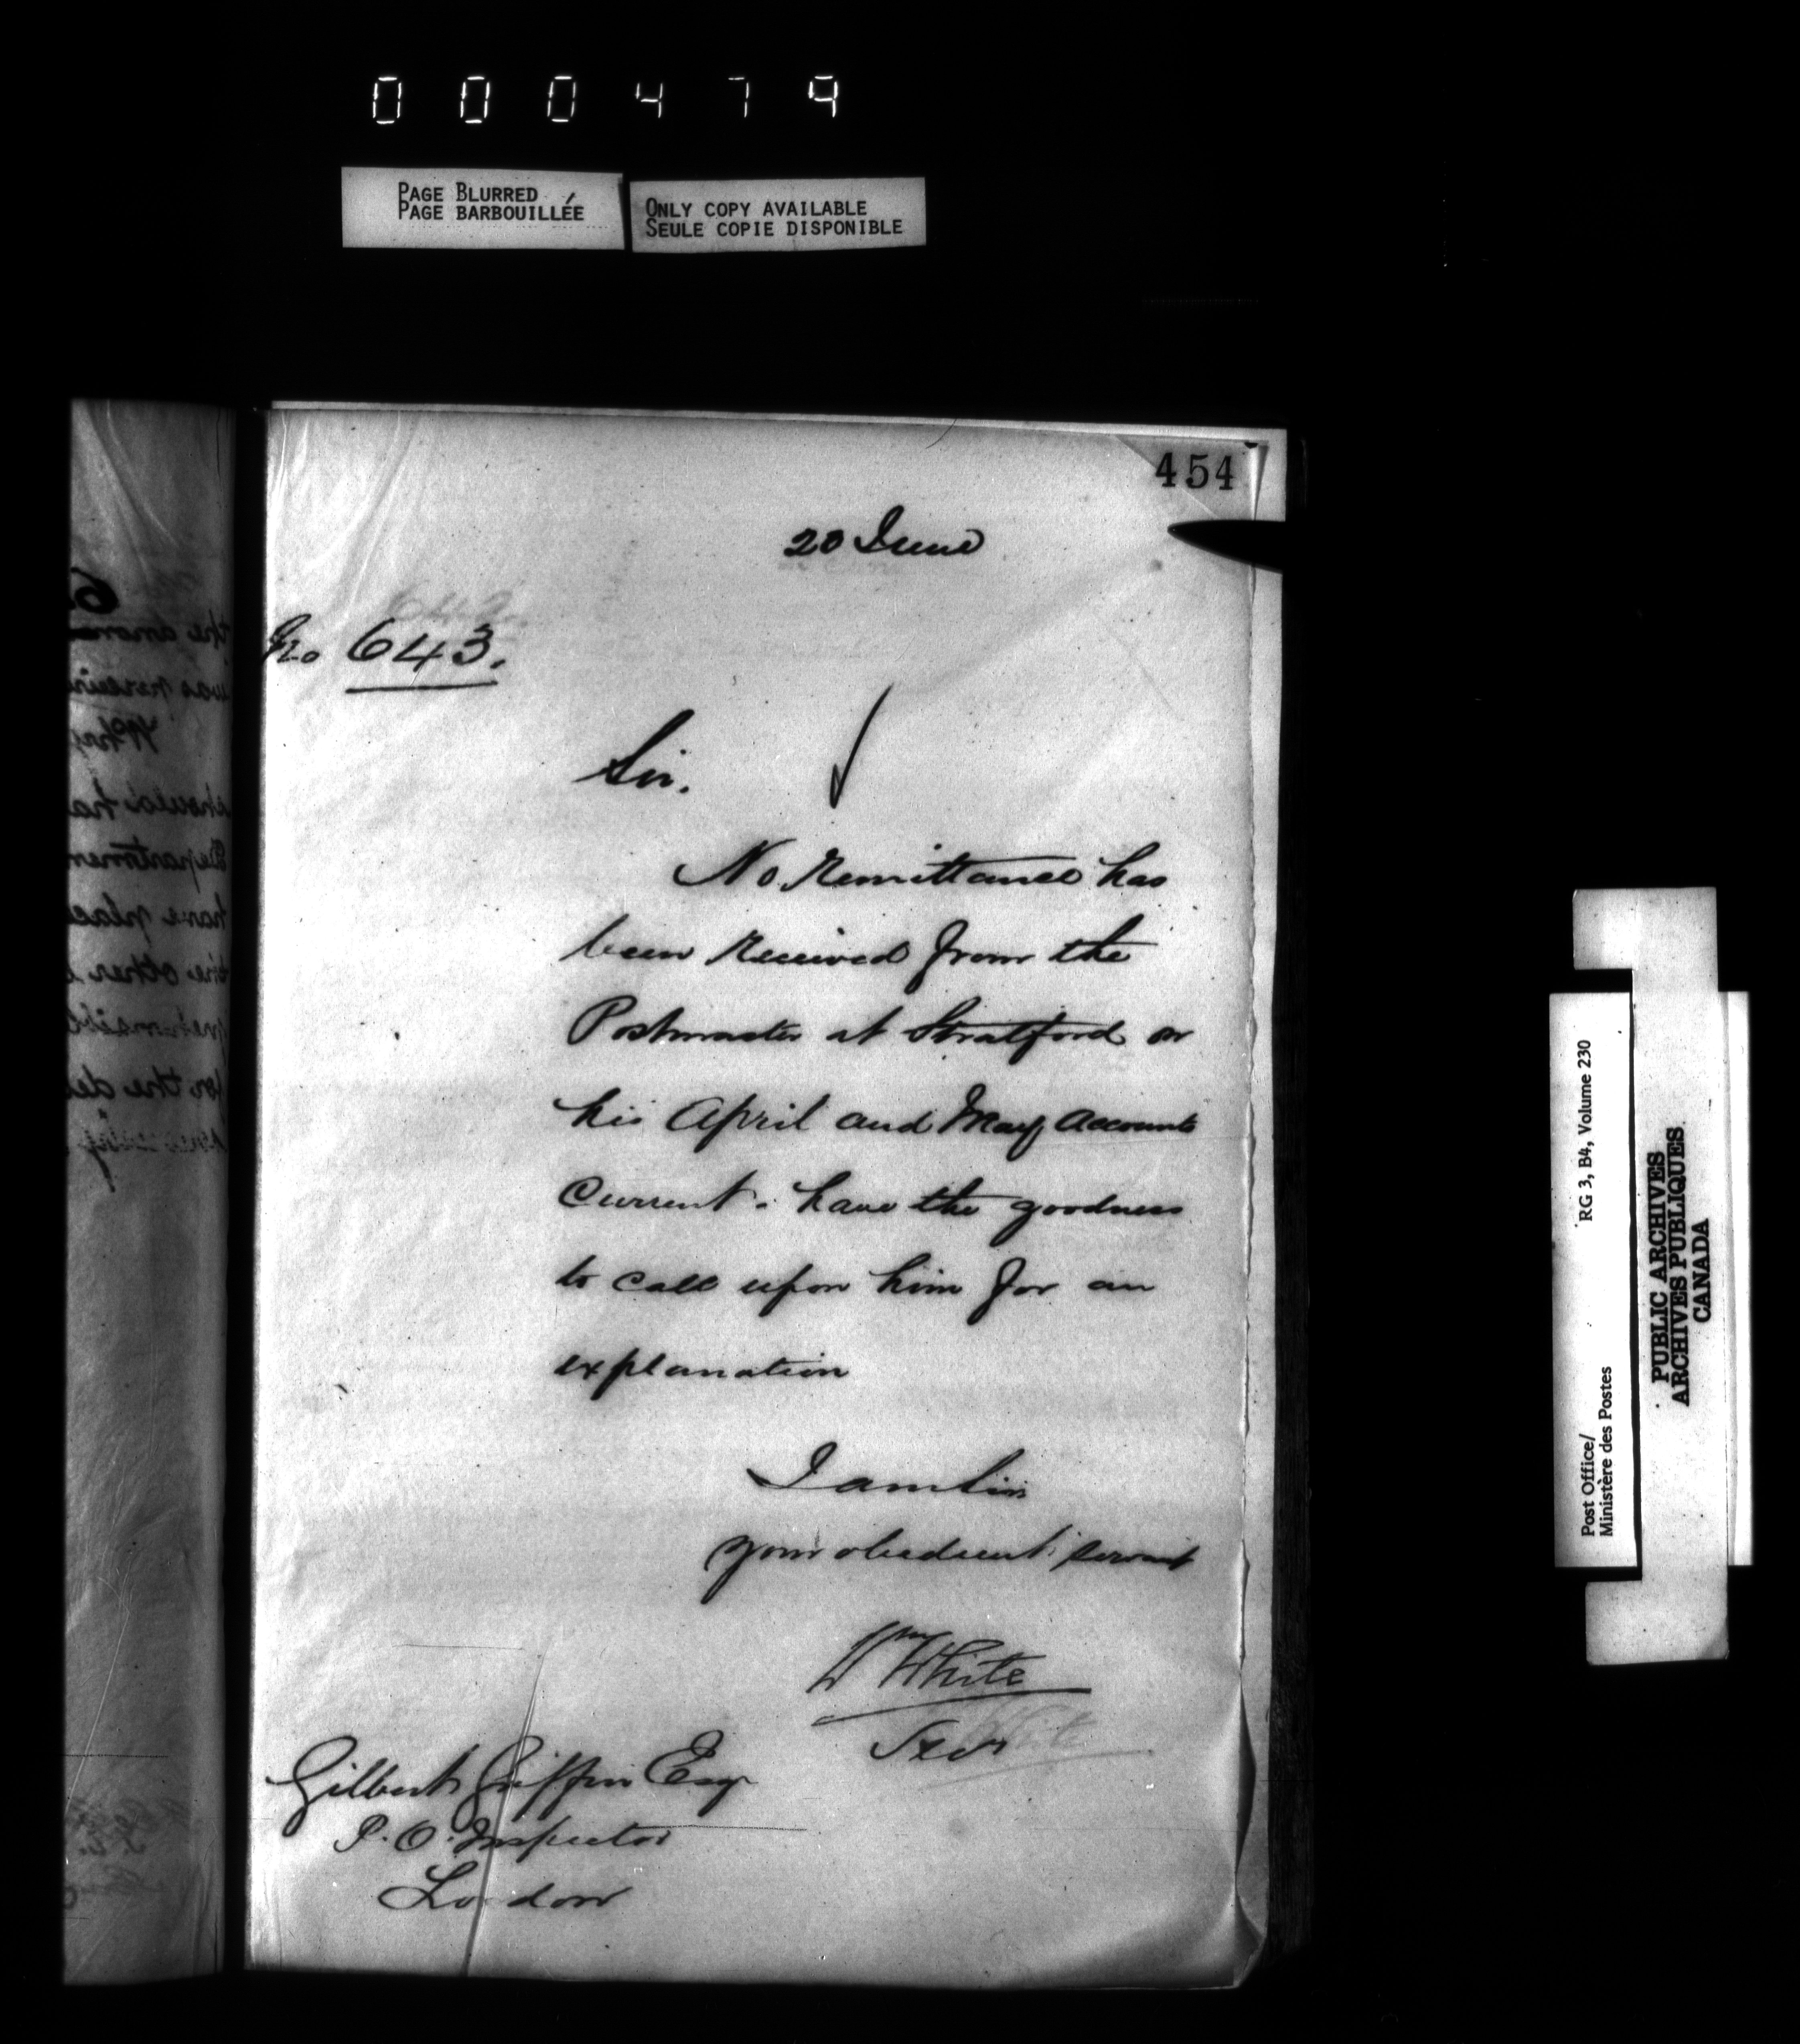 000479
PAGE BLURRED
PAGE BARBOUILLÉE
ONLY COPY AVAILABLE
SEULE COPIE DISPONIBLE
454
20 June
No 643.
Sir.
No Remittance has
been Received from the
Postmaster at Stratford on
his April and May Accounts
Current. have the goodness
to call upon him for an
explanation
I am Sir
your obedient servant
Wm White
Secy
Gilbert Griffin Esqr
P.O. Inspector
London
Post Office/ RG 3, B4, Volume 230
Ministère des Postes
PUBLIC ARCHIVES
ARCHIVES PUBLIQUES
CANADA